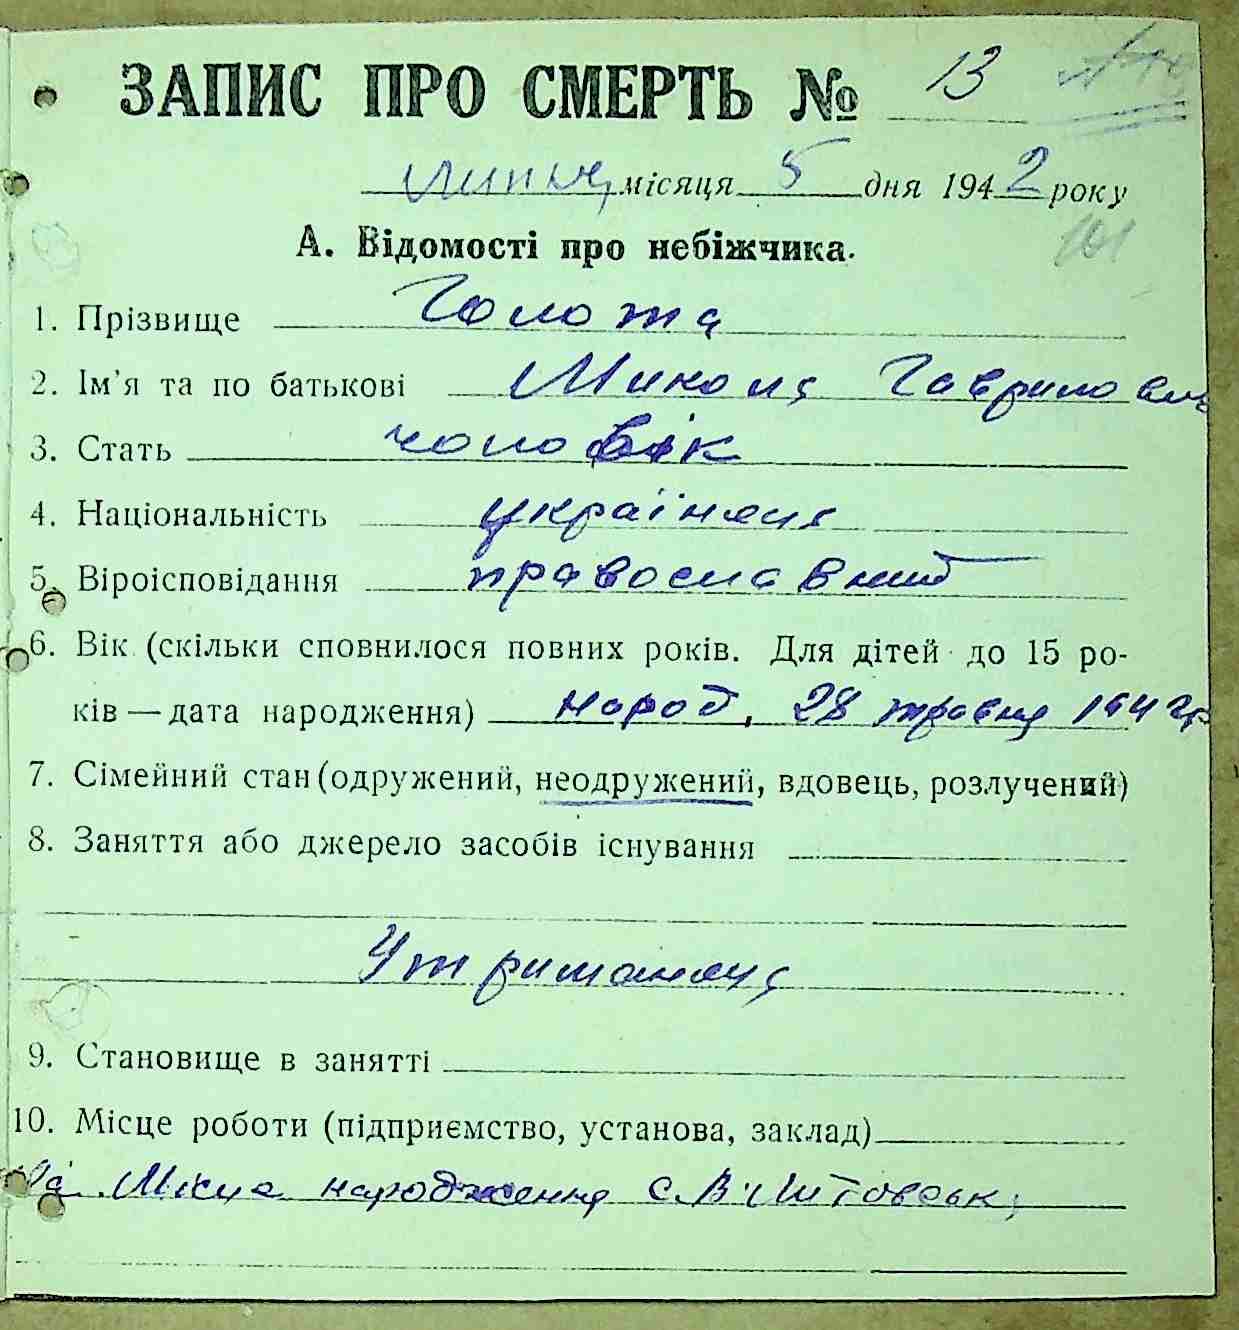 ЗАПИС ПРО СМЕРТЬ № 13
липня місяця 5 дня 1942 року
101
А. Відомості про небіжчика.
1. Прізвище Голота
2. Ім'я та по батькові Микола Гаврилович
3. Стать чоловік
4. Національність українець
5. Віроісповідання православний
6. Вік (скільки сповнилося повних років. Для дітей до 15 ро-
ків — дата народження) народ. 28 травня 1942р
7. Сімейний стан (одружений, неодружений, вдовець, розлучений)
8. Заняття або джерело засобів існування
Утриманець
9. Становище в занятті
10. Місце роботи (підприємство, установа, заклад)
Місце народження с. В. Литовськ